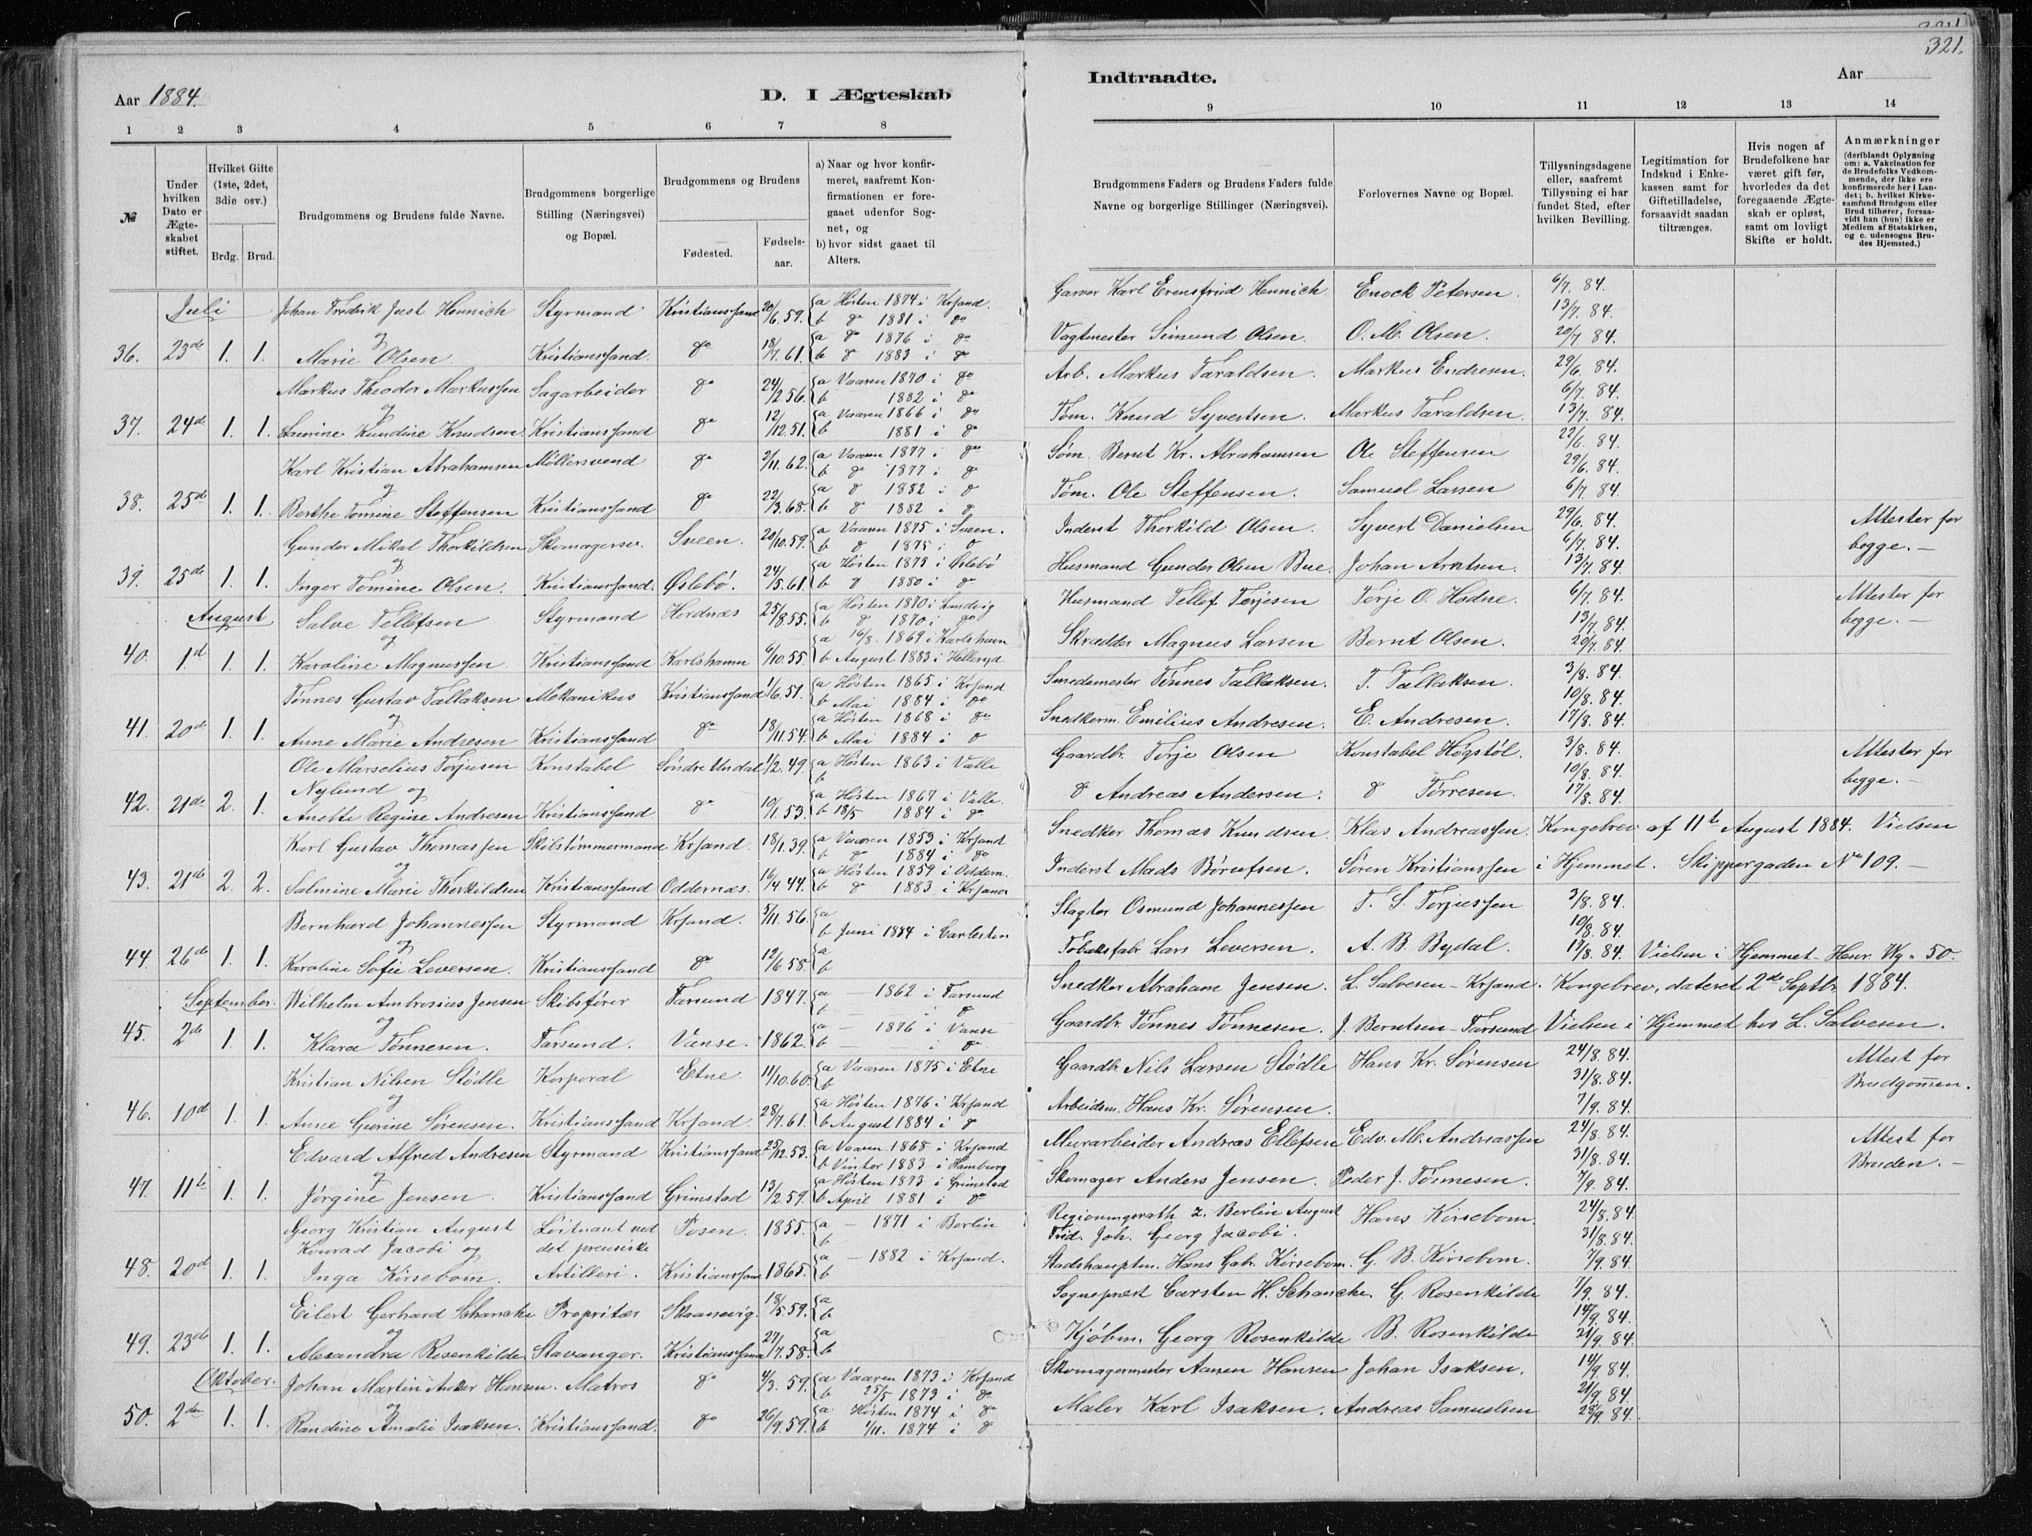 321.
Aar 1884.
D. I Ægteskab
Indtraadte.
Aar
1 2 3 4 5 6 7 8 9 10 11 12 13 14
№
Under hvilken Dato er Ægteskabet stiftet.
Hvilket Gifte (1ste, 2det, 3die osv.)
Brdg. Brud.
Brudgommens og Brudens fulde Navne.
Brudgommens borgerlige Stilling (Næringsvei) og Bopæl.
Brudgommens og Brudens
Fødested.
Fødselsaar.
a) Naar og hvor konfirmeret, saafremt Konfirmationen er foregaaet udenfor Sognet, og
b) hvor sidst gaaet til Alters.
Brudgommens Faders og Brudens Faders fulde Navne og borgerlige Stillinger (Næringsvei).
Forlovernes Navne og Bopæl.
Tillysningsdagene eller, saafremt Tillysning ei har fundet Sted, efter hvilken Bevilling.
Legitimation for Indskud i Enkekassen samt for Giftetilladelse, forsaavidt saadan tiltrænges.
Hvis nogen af Brudefolkene har været gift før, hvorledes da det foregaaende Ægteskab er opløst, samt om lovligt Skifte er holdt.
Anmærkninger
(deriblandt Oplysning om: a. Vakcination for de Brudefolks Vedkommende, der ikke ere konfirmerede her i Landet; b. hvilket Kirkesamfund Brudgom eller Brud tilhører, forsaavidt han (hun) ikke er Medlem af Statskirken, og c. udensogns Brudes Hjemsted.)
Juli Johan Fredrik Just Hennich Styrmand Kristianssand 20/6.59. a Høsten 1874 i Krsand. b do 1881 i do Garver Karl Erensfried Hennich Enock Petersen. 6/7.84. 13/7.84.
36. 23de 1. 1. og Marie Olsen Kristianssand. do 18/7.61. a do 1876 i do b do 1883 i do Vagtmester Simund Olsen O. M. Olsen. 20/7 84.
Markus Theodor Markussen Sagarbeider do 24/2 56. a Vaaren 1870 i do b 1882 i do Arb. Markus Taraldsen. Markus Endresen. 29/6.84. 6/7.84.
37. 24de 1. 1. og Laurine Kundine Knudsen Kristianssand do 12/12.51. a Vaaren 1866 i do b 1881 i do Tøm. Knud Syvertsen. Markus Taraldsen. 13/7.84.
Karl Kristian Abrahamsen Møllersvend do 2/11.62. a Vaaren 1877 i do b do 1877 i do Søm. Bernt Kr. Abrahamsen Ole Steffensen 22/6.84. 29/6.84.
38. 25de 1. 1. og Berthe Tomine Steffensen Kristianssand do 22/3.68. a do 1882 i do b do 1882 i do Tøm. Ole Steffensen. Samuel Larsen 6/7.84.
Gunder Mikal Thorkildsen Skomagersv. Sveen. 20/10.59. a Vaaren 1875 i Sveen. b do 1875 i do Inderst Thorkild Olsen. Syvert Danielsen 29/6.84. 6/7.84. Attester for begge. —
39. 25de 1. 1. og Inger Tomine Olsen. Kristianssand. Øslebö. 24/5.61. a Høsten 1875 i Øslebö b do 1880 i do Husmand Gunder Olsen Bue. Johan Arntsen. 13/7.84.
August Salve Tellefsen Styrmand Herdnæs 25/8 55. a Høsten 1870 i Lundvig b do 1870 i do Husmand Tellef Terjesen Terje O. Hodne. 6/7.84. 13/7 84. Attester for begge. —
40. 1ste 1. 1. og Karoline Magnussen. Kristianssand. Karlshamn 6/10.55. a 16/8. 1869 i Karlshamn b August 1883 i Helleryd Skrædder Magnus Larsen Bernt Olsen. 20/7.84.
Tønnes Gustav Tallaksen Mekanikus Kristianssand 1/6.51. a Høsten 1865 i Krsand b Mai 1884 i do Smedemester Tønnes Tallaksen. T. Tallaksen. 3/8.84. 10/8.84.
41. 20de 1. 1. og Anne Marie Andresen Kristianssand do 18/11 54. a Høsten 1868 i do b Mai 1884 i do Snedkerm. Emilius Andresen. E. Andresen. 17/8.84.
Ole Marselius Terjusen Nylund og Konstabel Søndre Undal 1/2.49. a Høsten 1863 i Valle b Gaardbr. Terje Olsen Konstabel Høgstöl. 3/8.84. 10/8 84. Attester for begge. —
42. 21de 2. 1. Anette Regine Andresen Kristianssand do 10/1.53. a Høsten 1867 i Valle. b 18/5 1884 i do do Andreas Andersen. do Tørresen. 17/8.84.
Karl Gustav Thomassen Skibstömmermand Krsand. 18/1.39. a Vaaren 1853 i Krsand b do 1884 i do Snedker Thomas Knudsen. Klas Andreassen. Kongebrev af 11te August 1884. Vielsen
43. 21de 2. 2. og Salmine Marie Thorkildsen Kristianssand Oddernæs. 16/4.44. a Høsten 1859 i Oddern. b do 1883 i Krsand Inderst Mads Børufsen. Søren Kristianssen i Hjemmet. Skippergaden No 109. —
Bernhard Johannessen Styrmand Krsand. 5/11.56. a b Juni 1884 i Carlesten Slagter Osmund Johannessen T. S. Terjussen 3/8.84. 10/8.84.
44. 26de 1. 1. og Karoline Sofie Leversen. Kristianssand do 12/6.58. a b Tobaksfabr. Lars Leversen. A. B. Bydal. 17/8.84. Vielsen i Hjemmet Henr. Wg. 50.
September. Wilhelm Ambrosius Jensen Skibsfører Farsund 1847. a — 1862 i Farsund b do Snedker Abraham Jensen. L. Salvesen — Krsand. Kongebrev, dateret 2de Septbr 1884.
45. 2de 1. 1. og Klara Tønnesen. Farsund. Vanse. 1862. a — 1876 i Vanse b — — i do Gaardbr. Tønnes Tønnesen. J. Berntsen — Farsund Vielsen i Hjemmet hos L. Salvesen.
Kristian Nilsen Stødle Korporal Etne. 11/10.60. a Vaaren 1875 i Etne b Gaardbr. Nils Larsen Stødle Hans Kr. Sørensen 24/8.84. 31/8.84. Attest for Brudgommen.
46. 10de 1. 1. og Anne Gurine Sørensen. Kristianssand Krsand. 28/7.61. a Høsten 1876 i Krsand b August 1884 i do Arbeidsm. Hans Kr. Sørensen. 7/9.84.
Edvard Alfred Andresen Styrmand Kristianssand 25/12.53. a Vaaren 1868 i Krsand b Vinter 1883 i Hamburg Murarbeider Andreas Ellefsen Edv. M. Andreassen 24/8.84. 31/8.84. Attest for Bruden. —
47. 11te 1. 1. og Jørgine Jensen. Kristianssand Grimstad 13/2 59. a Høsten 1873 i Grimstad b April 1881 i do Skomager Anders Jensen. Peder J. Tönnesen. 7/9.84.
Georg Kristian August Konrad Jacobi og Löitnant ved det preusiske Posen. 1855. a — 1871 i Berlin b Regieringsrath z. Berlin August Frid. Joh. Georg Jacobi. Hans Kirsebom. 24/8.84. 31/8.84.
48. 20de 1. 1. Inga Kirsebom. Artilleri. Kristianssand 1865. a — 1882 i Krsand. b Stadshauptm. Hans Gabr. Kirsebom. G. B. Kirsebom. 7/9.84
Eilert Gerhard Schanche Propritær Skaanevig. 18/5.59. a b Sogneprest Carsten H. Schanche. G. Rosenkilde 7/9.84. 14/9.84.
49. 23de 1. 1. og Alexandra Rosenkilde Stavanger. Kristianssand 27/7.58. a b Kjøbm. Georg Rosenkilde B. Rosenkilde 21/9.84.
Oktober. Johan Martin Hansen. Matros do 4/3.59. a Vaaren 1873 i Krsand b 25/5 1873 i do Skomagermester Aanen Hansen Johan Isaksen. 14/9.84. 21/9 84.
50. 2den 1. 1. og Randine Amalie Isaksen. Kristianssand. do 26/9.59. a Høsten 1874 i do b 1/11. 1874 i do Maler Karl Isaksen. Andreas Samuelsen 28/9.84.